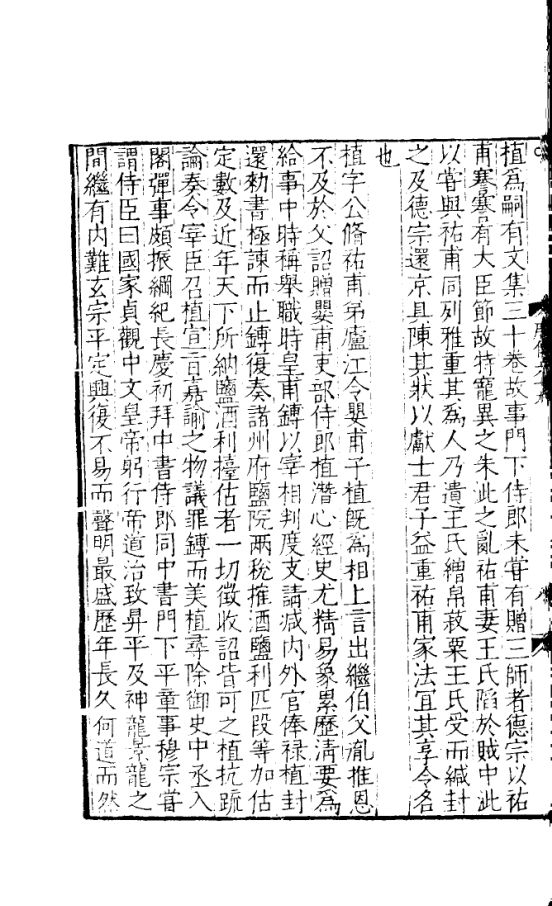 植為嗣有文集三十卷故事門下侍郎未嘗有贈三師者德宗以祐
甫謇謇有大臣節故特寵異之朱泚之亂祐甫妻王氏陷於賊中泚
以嘗與祐甫同列雅重其為人乃遺王氏繒帛菽粟王氏受而緘封
之及德宗還京具陳其狀以獻士君子益重祐甫家法宜其享令名
也
植字公脩祐甫弟廬江令嬰甫子植既為相上言出繼伯父胤推恩
不及於父詔贈嬰甫吏部侍郎植潛心經史尤精易象累歷清要為
給事中時稱舉職時皇甫鎛以宰相判度支請減内外官俸禄植封
還勑書極諫而止鎛復奏諸州府鹽院兩稅搉酒鹽利匹段等加估
定數及近年天下所納鹽酒利擡估者一切徵收詔皆可之植抗疏
論奏令宰臣召植宣旨嘉諭之物議罪鎛而美植尋除御史中丞入
閣彈事頗振綱紀長慶初拜中書侍郎同中書門下平章事穆宗嘗
謂侍臣曰國家貞觀中文皇帝躬行帝道治致昇平及神龍景龍之
間繼有内難玄宗平定興復不易而聲明最盛歷年長久何道而然